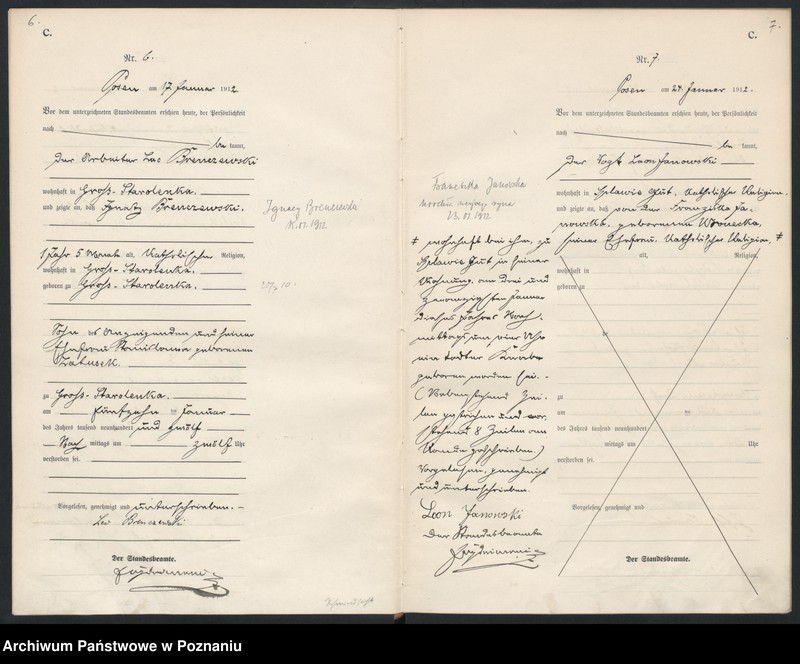 6.
C.
Nr. 6.
Posen am 17 Januar 1912.
Vor dem unterzeichneten Standesbeamten erschien heute, der Persönlichkeit
nach be kannt,
der Arbeiter Leo Brenczewski
wohnhaft in Gross-Starolenka.
und zeigte an, daß Ignatz Brenczewski.
1 Jahr 5 Monate alt, Katholischer Religion,
wohnhaft in Gross-Starolenka.
geboren zu Gross-Starolenka.
Sohn des Anzeigenden und seiner
Ehefrau Stanislawa geborenen
Ratusek.
zu Gross-Starolenka.
am fünfzehn ten Januar
des Jahres tausend neunhundert und zwölf
Nach mittags um zwölf Uhr
verstorben sei.
Vorgelesen, genehmigt und unterschrieben. -
Leo Brenczewski
Der Standesbeamte.
Ignacy Brenczewski
257, 10.
7.
C.
Nr. 7.
Posen am 24 Januar 1912.
Vor dem unterzeichneten Standesbeamten erschien heute, der Persönlichkeit
nach be kannt,
der Vogt Leon Janowski
wohnhaft in Gut, Katholischer Religion.
und zeigte an, daß von der Franziska Ja-
nowski, geborenen Wronecka,
seiner Ehefrau, Katholischer Religion,
alt, Religion,
wohnhaft in
geboren zu
zu
am ten
des Jahres tausend neunhundert
mittags um Uhr
verstorben sei.
Vorgelesen, genehmigt und
Der Standesbeamte.
Franciszka Janowska
23.01.1912.
wohnhaft bei ihm, zu
Gut in seiner
Wohnung, am drei und
zwanzigsten Januar
dieses Jahres Nach-
mittags um vier Uhr
ein todter Knabe
geboren worden sei. -
(Nebenstehend Zei-
len gestrichen und vor-
stehend 8 Zeilen am
Rande geschrieben.)
Vorgelesen, genehmigt
und unterschrieben.
Leon Janowski
Der Standesbeamte
Archiwum Państwowe w Poznaniu